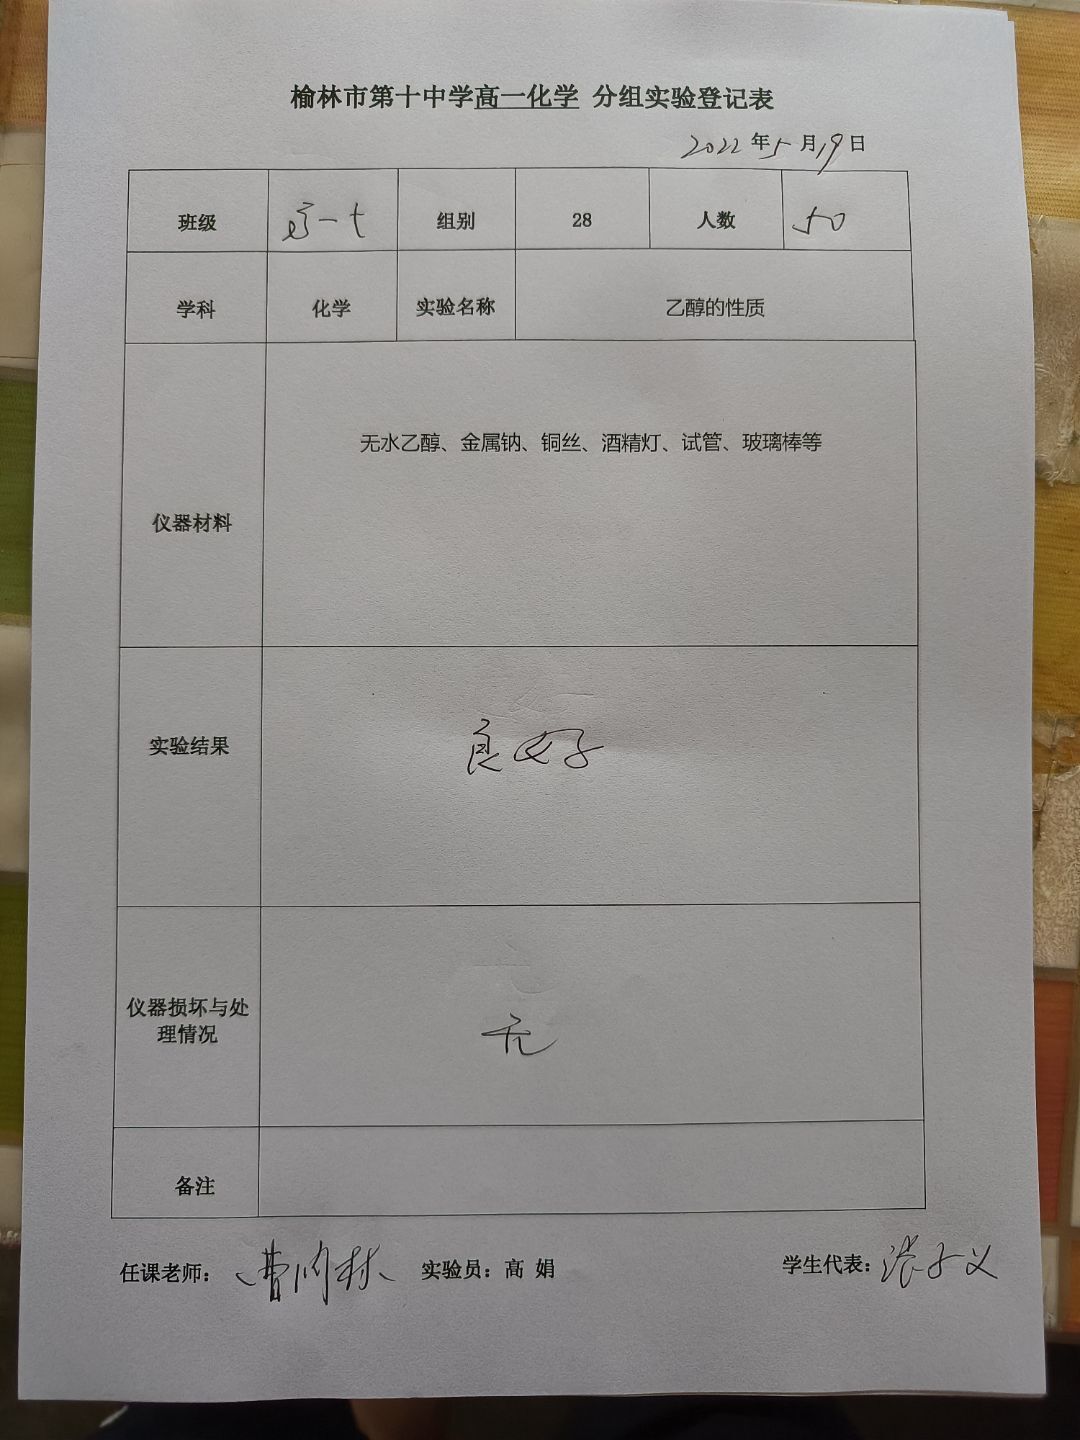 榆林市第十中学高一化学 分组实验登记表
2022年5月19日
班级 高一七 组别 28 人数 50
学科 化学 实验名称 乙醇的性质
仪器材料 无水乙醇、金属钠、铜丝、酒精灯、试管、玻璃棒等
实验结果 良好
仪器损坏与处
理情况 无
备注
任课老师: 实验员:高 娟 学生代表: